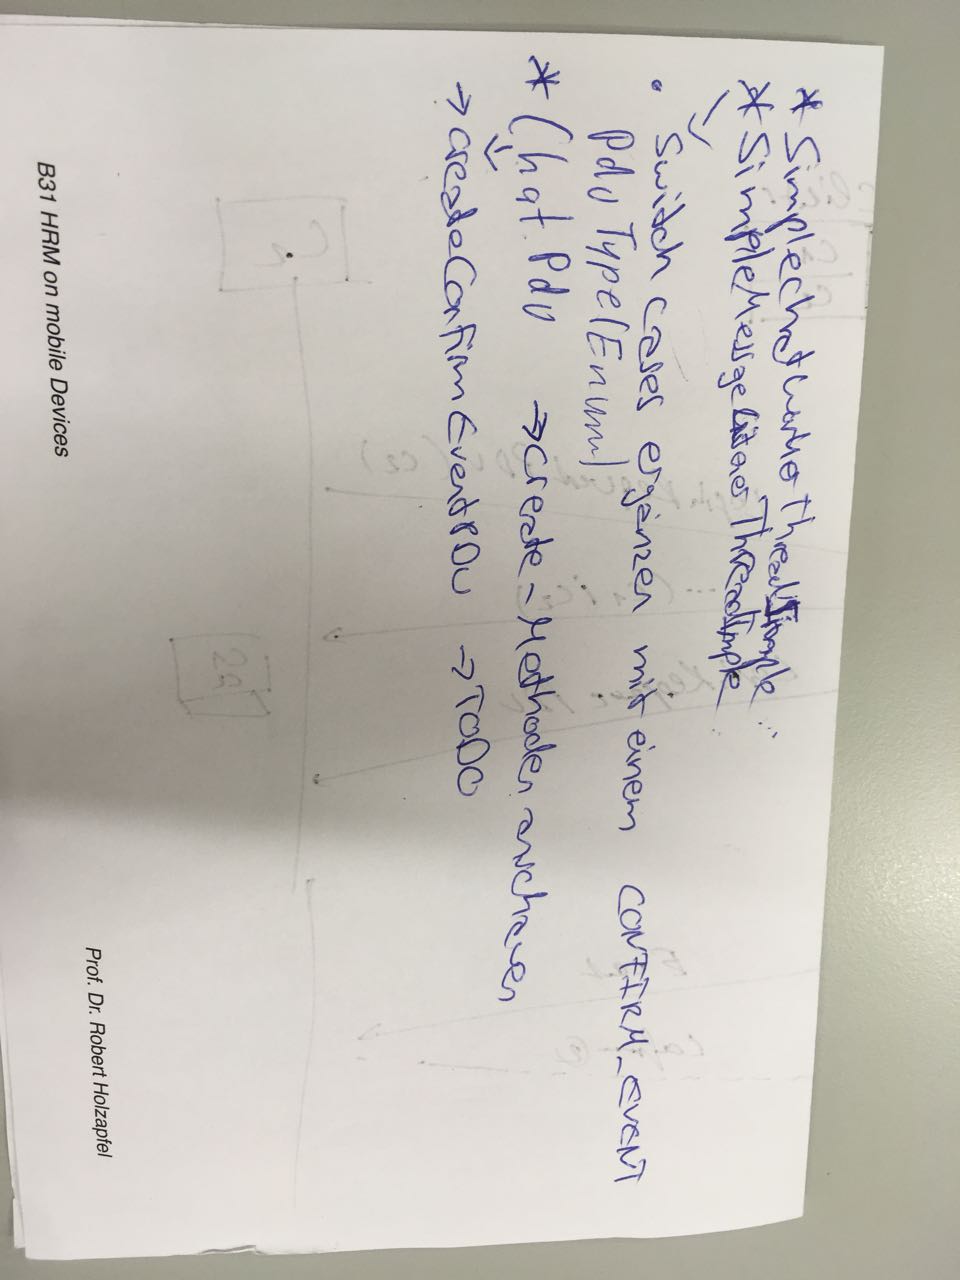 * SimpleChatWorkerThreadImple...
* SimpleMessageListenerThreadImple...
→ • Switch cases ergänzen mit einem CONFIRM_EVENT
PduType(Enum)
* ChatPdu → Create-Methoden anschauen
→ createConfirmEventPDU → TODO
B31 HRM on mobile Devices
Prof. Dr. Robert Holzapfel